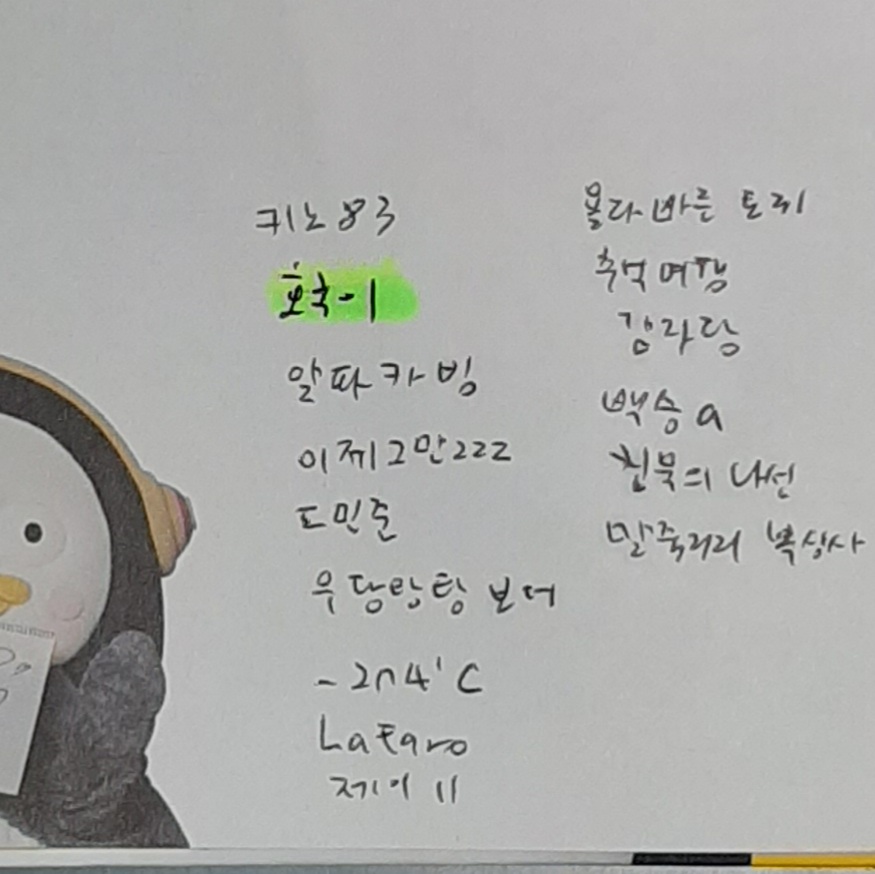 키노83
호구-1
알파카빙
이제그만222
도민준
우당탕탕 보더
Lataro
제이11
몰라 바른 토끼
추억여행
감자탕
백승a
진북의 나선
말죽거리 복상사